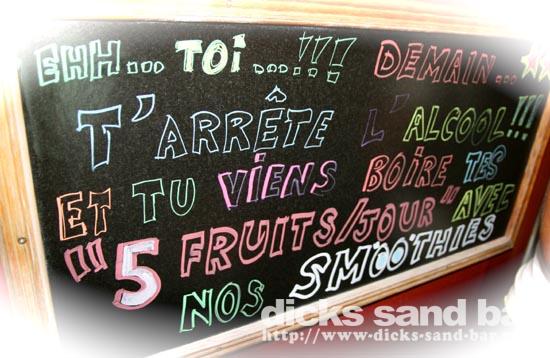 EHH... TOI ...!!! DEMAIN...
T'ARRÊTE L'ALCOOL!!!
ET TU VIENS BOIRE TES
"5 FRUITS/JOUR" AVEC
NOS SMOOTHIES
dicks sand ba
http://www.dicks-sand-bar